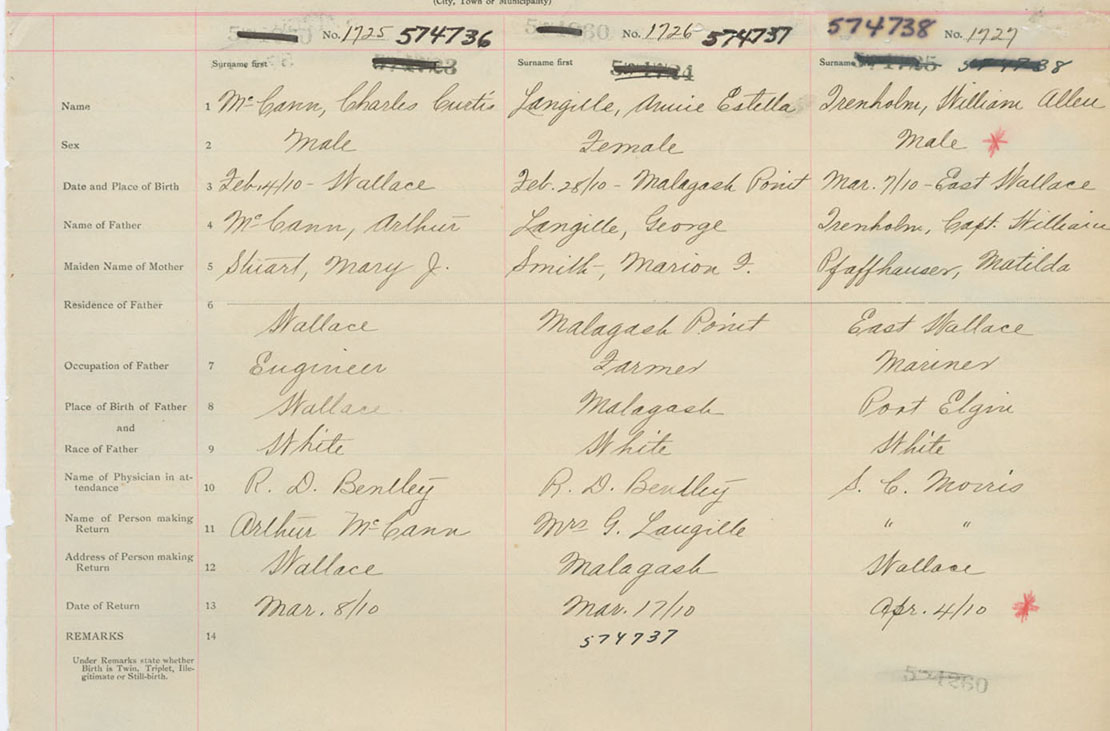 (City, Town or Municipality)
No. 1725 574736 No. 1726 574737 574738 No. 1727
Surname first Surname first Surname 574738
Name 1 McCann, Charles Curtis Langille, Annie Estella Trenholm, William Allen
Sex 2 Male Female Male
Date and Place of Birth 3 Feb. 4/10 - Wallace Feb. 28/10 - Malagash Point Mar. 7/10 - East Wallace
Name of Father 4 McCann, Arthur Langille, George Trenholm, Capt. William
Maiden Name of Mother 5 Stuart, Mary J. Smith, Marion F. Pfaffhauser, Matilda
Residence of Father 6
Wallace Malagash Point East Wallace
Occupation of Father 7 Engineer Farmer Mariner
Place of Birth of Father 8 Wallace Malagash Port Elgin
and
Race of Father 9 White White White
Name of Physician in at-
tendance 10 R. D. Bentley R. D. Bentley S. C. Morris
Name of Person making
Return 11 Arthur McCann Mrs G. Langille " "
Address of Person making
Return 12 Wallace Malagash Wallace
Date of Return 13 Mar. 8/10 Mar. 17/10 Apr. 4/10
REMARKS 14 574737
Under Remarks state whether
Birth is Twin, Triplet, Ille-
gitimate or Still-birth.